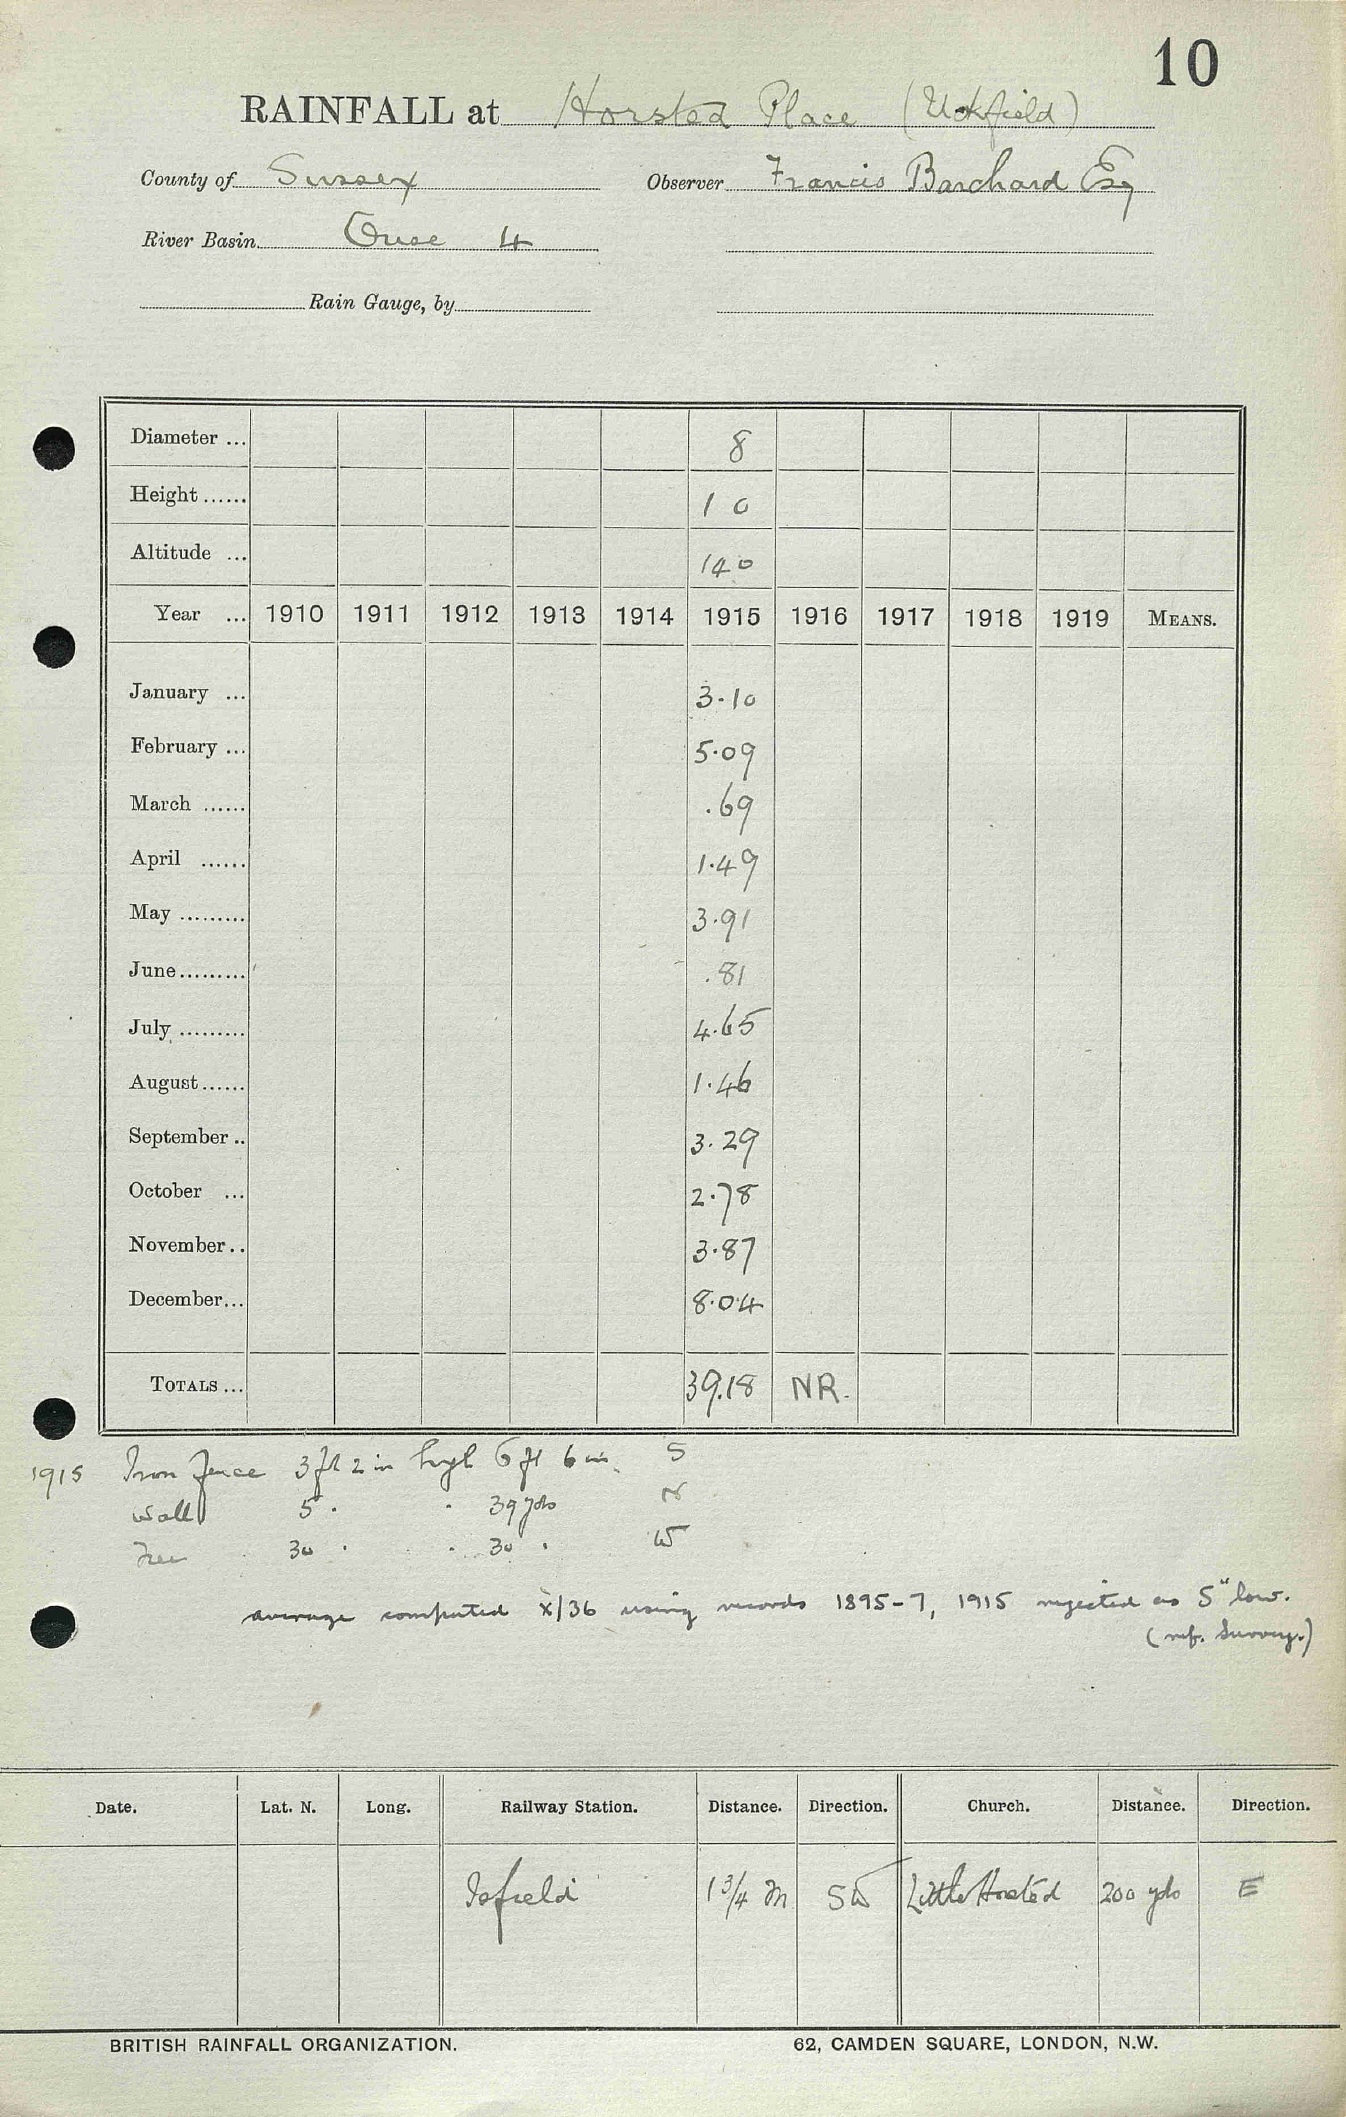 10
RAINFALL at Horsted Place (Uckfield)
County of Sussex Observer Francis Barchard Esq
River Basin Ouse 4
Rain Gauge, by
Diameter ... 8
Height ...... 1 0
Altitude ... 140
Year ... 1910 1911 1912 1913 1914 1915 1916 1917 1918 1919 MEANS.
January ... 3.10
February ... 5.09
March ...... .69
April ...... 1.49
May ......... 3.91
June ......... .81
July ......... 4.65
August ...... 1.46
September .. 3.29
October ... 2.78
November .. 3.87
December ... 8.04
TOTALS ... 39.18 NR.
1915 Iron fence 3 ft 2 in high 6 ft 6 in. S
Wall 5 . . 39 yds N
Tree 30 . . 30 . W
average computed x/36 using records 1895-7, 1915 rejected as 5" low.
(ref. Survey.)
Date. Lat. N. Long. Railway Station. Distance. Direction. Church. Distance. Direction.
Isfield 1 3/4 m SW Little Horsted 200 yds E
BRITISH RAINFALL ORGANIZATION. 62, CAMDEN SQUARE, LONDON, N.W.